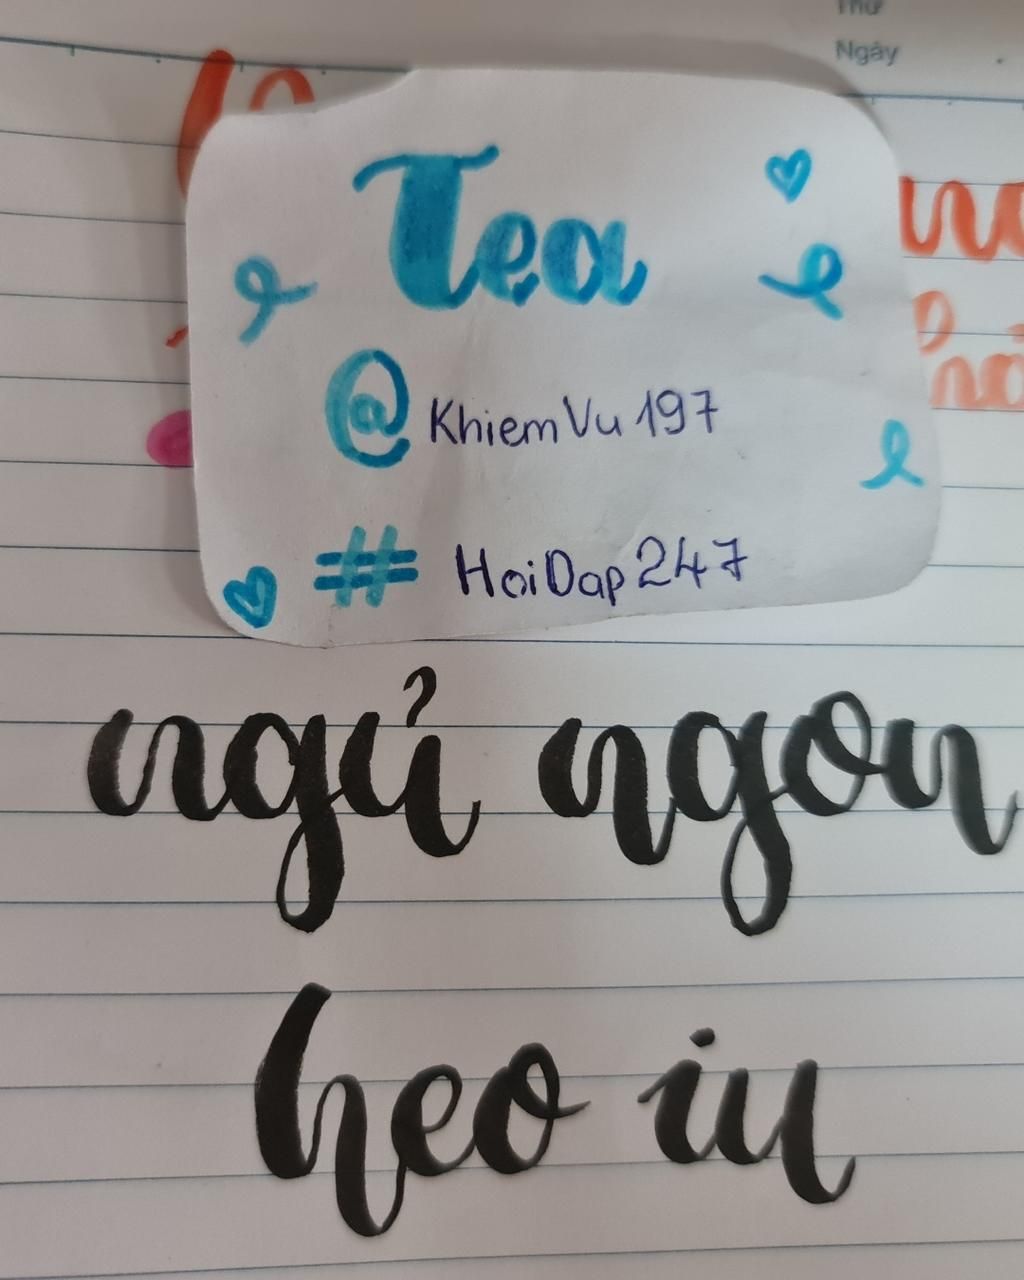 Thứ
Ngày
Tea
@KhiemVu197
# HoiDap247
ngủ ngon
heo iu